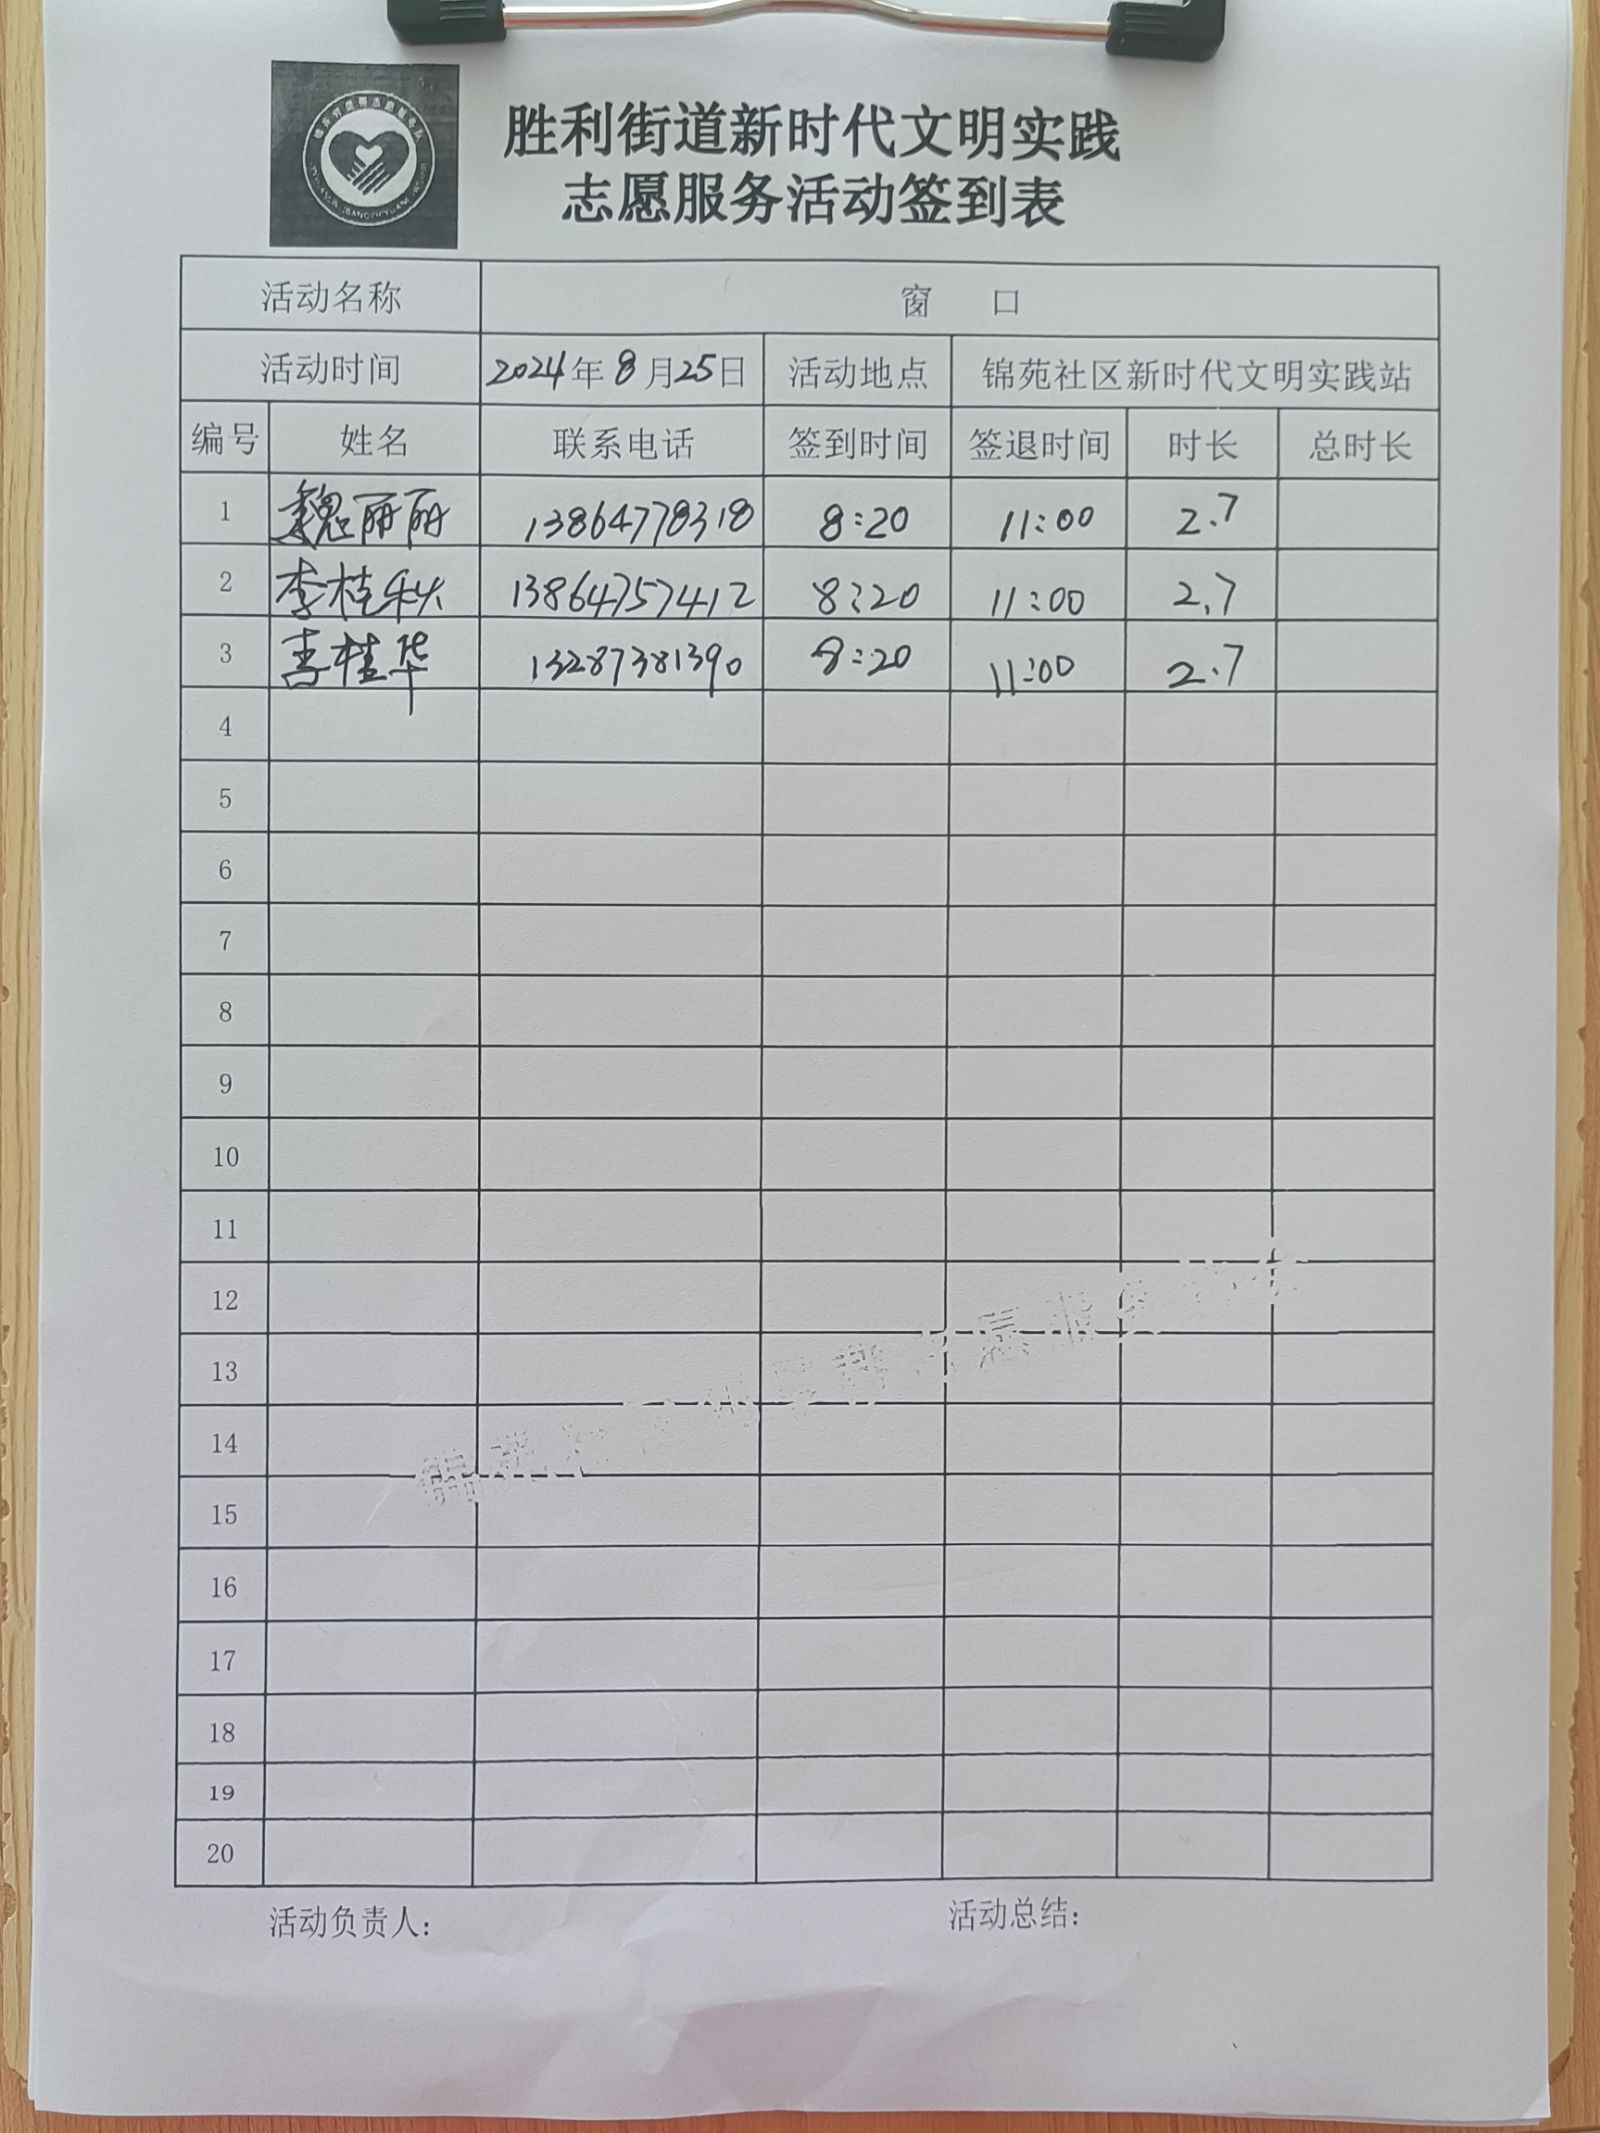 胜利街道新时代文明实践
志愿服务活动签到表
活动名称 窗 口
活动时间 2024年8月25日 活动地点 锦苑社区新时代文明实践站
编号 姓名 联系电话 签到时间 签退时间 时长 总时长
1 魏丽丽 13864778318 8:20 11:00 2.7
2 李桂秋 13864757412 8:20 11:00 2.7
3 李桂华 13287381390 8:20 11:00 2.7
4
5
6
7
8
9
10
11
12
13
14
15
16
17
18
19
20
活动负责人: 活动总结: